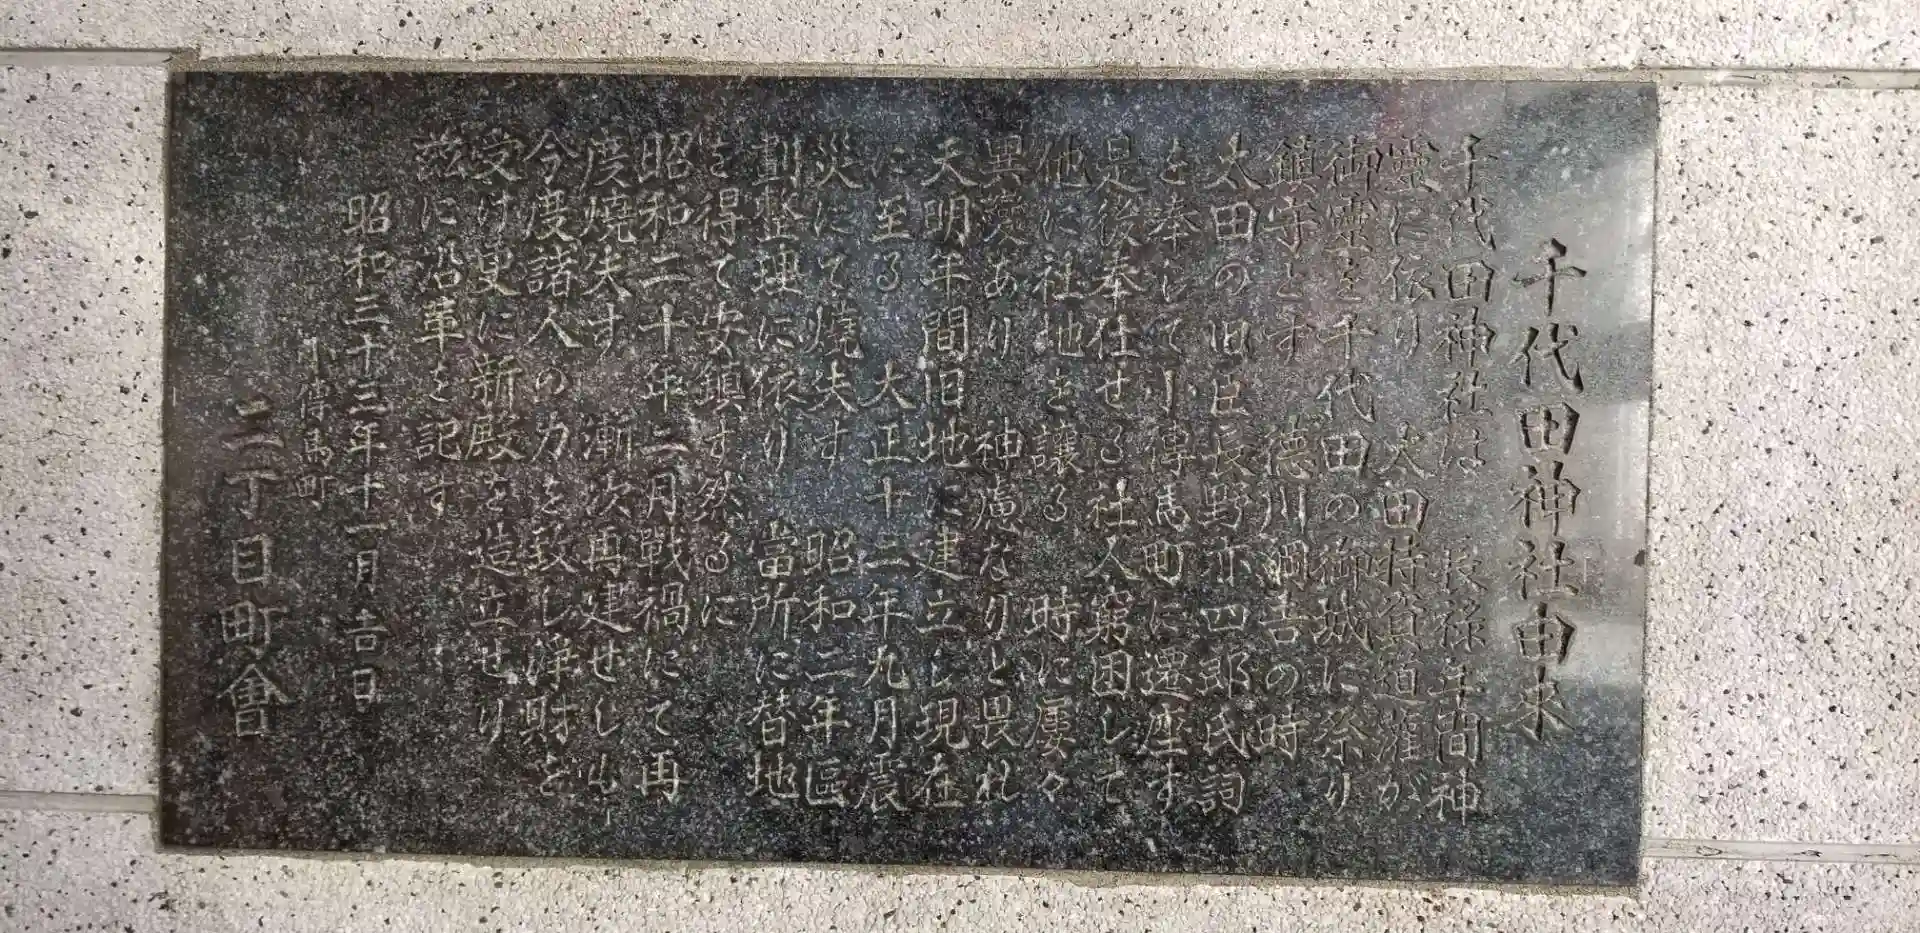 千代田神社由来
千代田神社は　長禄年間神
靈に依り　太田持資道灌が
御靈を千代田の御城に祭り
鎮守とす　徳川綱吉の時
太田の旧臣長野亦四郎氏詞
を奉して小傳馬町に遷座す
是後奉仕せる社人窮困して
他に社地を譲る　時に屢々
異変あり　神慮なりと畏れ
天明年間旧地に建立し現在
に至る　大正十二年九月震
災にて燒失す　昭和二年區
劃整理に依り　當所に替地
を得て安鎮す然るに
昭和二十年二月戰禍にて再
度燒失す　漸次再建せしも
今度諸人の力を致し浄財を
受け更に新殿を造立せり
茲に沿革を記す
昭和三十三年十一月吉日
小傳馬町
二丁目町會